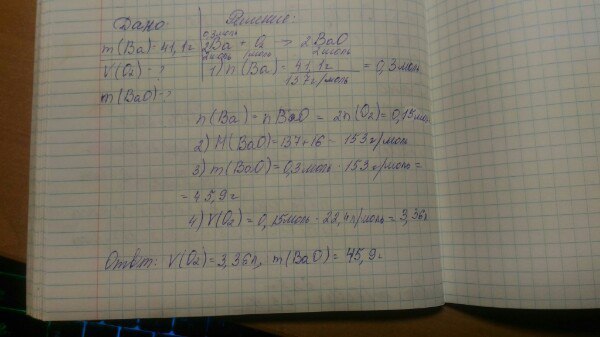 Дано:
m(Ba)=41,1г
V(O₂)-?
m(BaO)-?
Решение:
0,3моль
2Ba + O₂ > 2BaO
2моль 1моль 2моль
1) n(Ba) = 41,1г / 137г/моль = 0,3моль
n(Ba) = nBaO = 2n(O₂) = 0,15моль
2) M(BaO)=137+16 = 153г/моль
3) m(BaO)=0,3моль · 153г/моль =
= 45,9г
4) V(O₂) = 0,15моль · 22,4л/моль = 3,36л
Ответ: V(O₂)=3,36л, m(BaO) = 45,9г